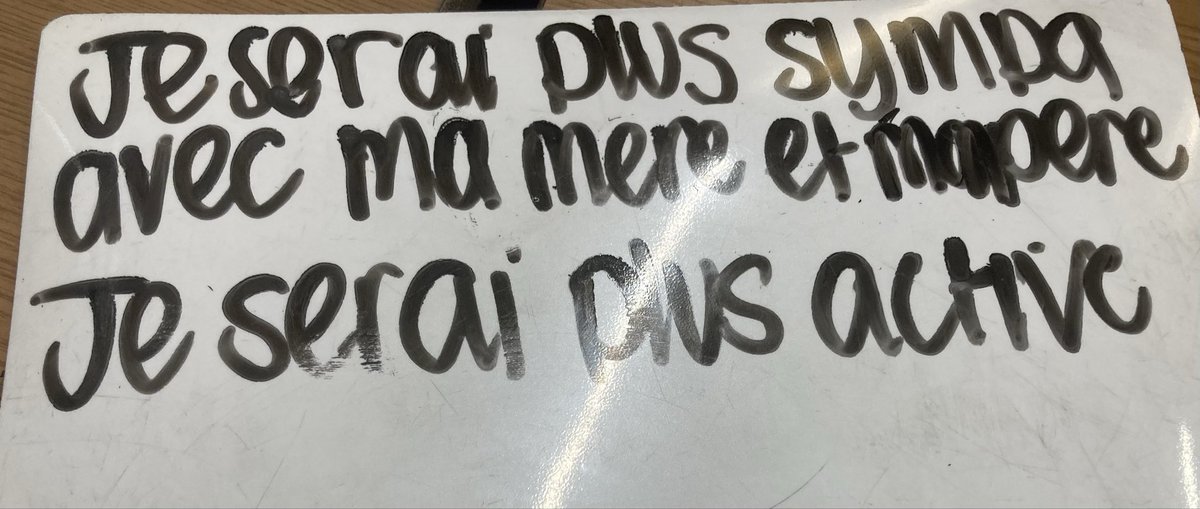 Je serai plus sympa
avec ma mere et ma pere
Je serai plus active